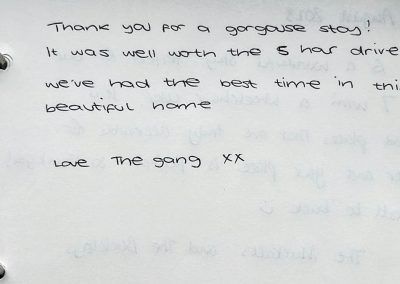 Thank you for a gorgouse stay!
It was well worth the 5 har drive
we've had the best time in thi
beautiful home
Love The gang xx